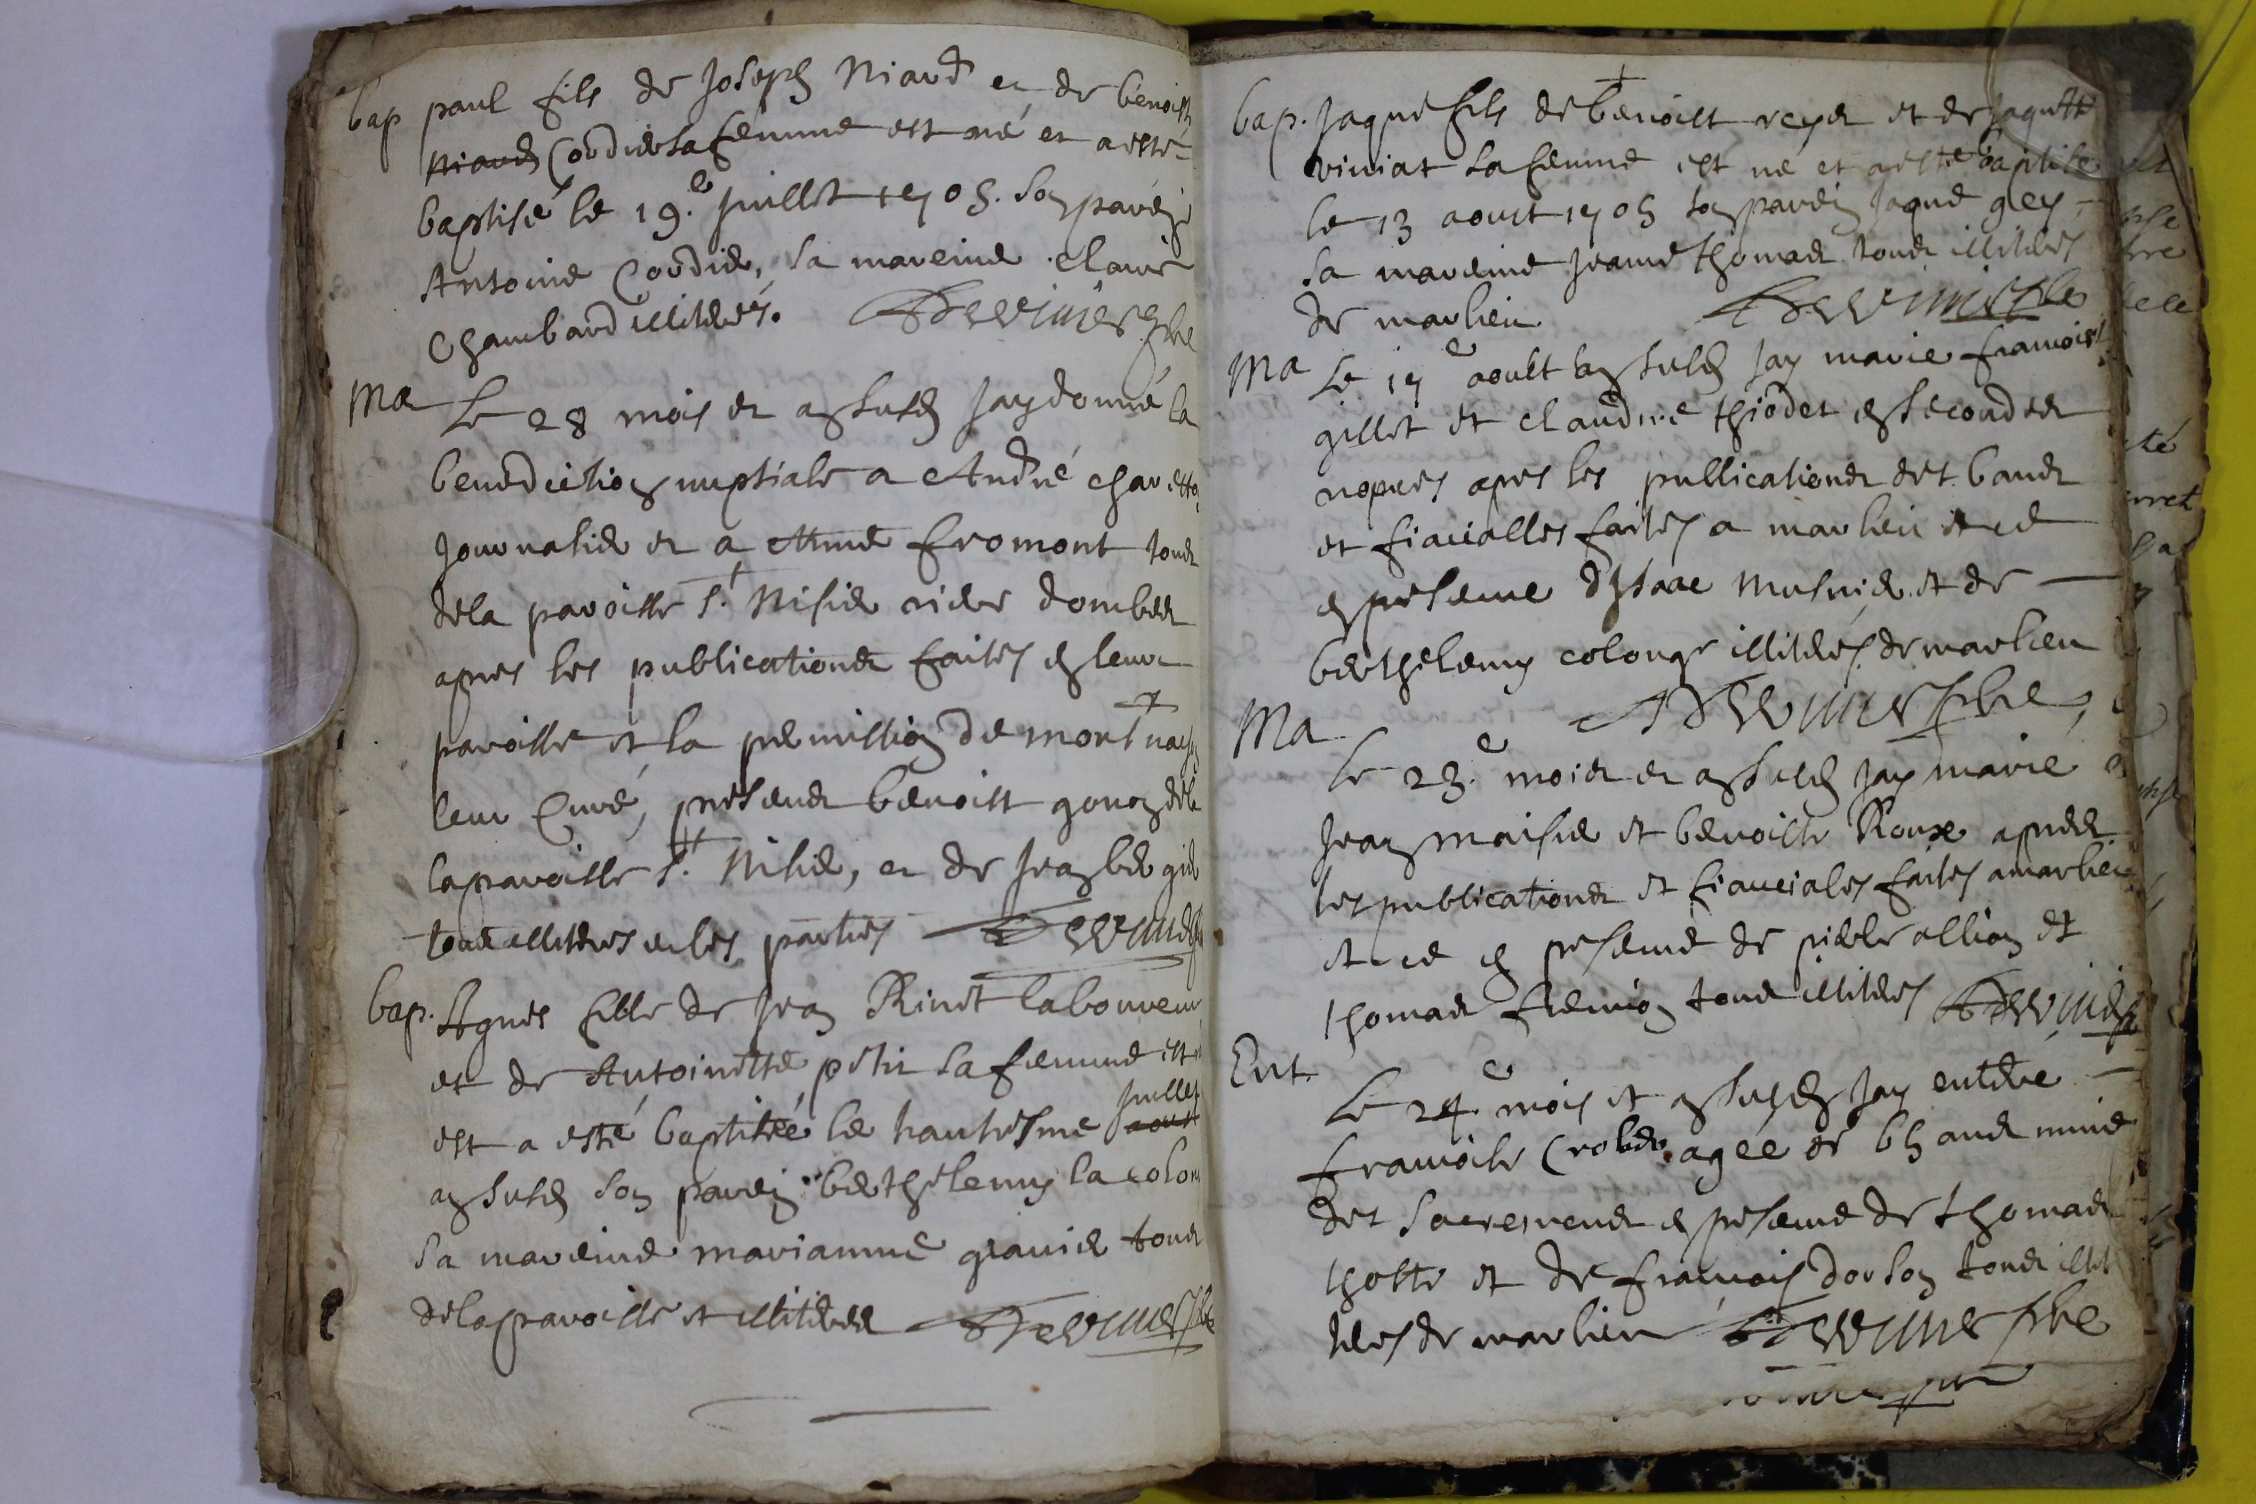 bap paul fils de Joseph Niard et de benoiste
Niard Cordier sa femme est né et a esté
baptisé le 19.e juillet 1705. son parein
Antoine Cordier, sa mareine claire
Chambard illiterés.
Ma Le 28 mois et an susd Jay donné la
benediction nuptiale a André charetton
Journalier et a Anne fromont tous
de la paroisse St. Nisier riere dombes
apres les publications faites en leur
paroisse et la permission de monsr
leur Curé, presens benoist gonon de la
la paroisse St. Nisier, et de Jean bergier
tous illiterés et les parties
bap. Agnes fille de Jean Rinet laboureur
et de Antoinette petit sa femme est
est a esté baptisée le juillet
aoust
an susd son parein berthelemy la colon
sa mareine marianne gravier tous
de la paroisse et illiteres
bap. Jaque fils de benoist reyd et de Jaquette
viviat sa femme est né et a esté baptisé
le 13 aoust 1705 son parein Jaque gey
sa mareine Jeanne thomas tous illiterés
de marlieu
Ma Le 17e aoust an susd Jay marié francois
gillet et claudine thiodet en secondes
nopces apres les publications des bans
et fiancialles faites a marlieu et ce
en presence d'Isaac Musnier et de
berthelemy colonge illiterés de marlieu
Ma
Le 23.e mois et an susd Jay marié
Jean maisier et benoiste Roux apres
les publications et fianciales faites a marlieu
et ce en presence de pierre allion et
thomas tous illiterés
Ent.
Le 24.e mois et an susd Jay enterré
francoise Crober agée de 65 ans munie
des sacremens en presence de thomas
thotte et de francois dorson tous illit
terés de marlieu